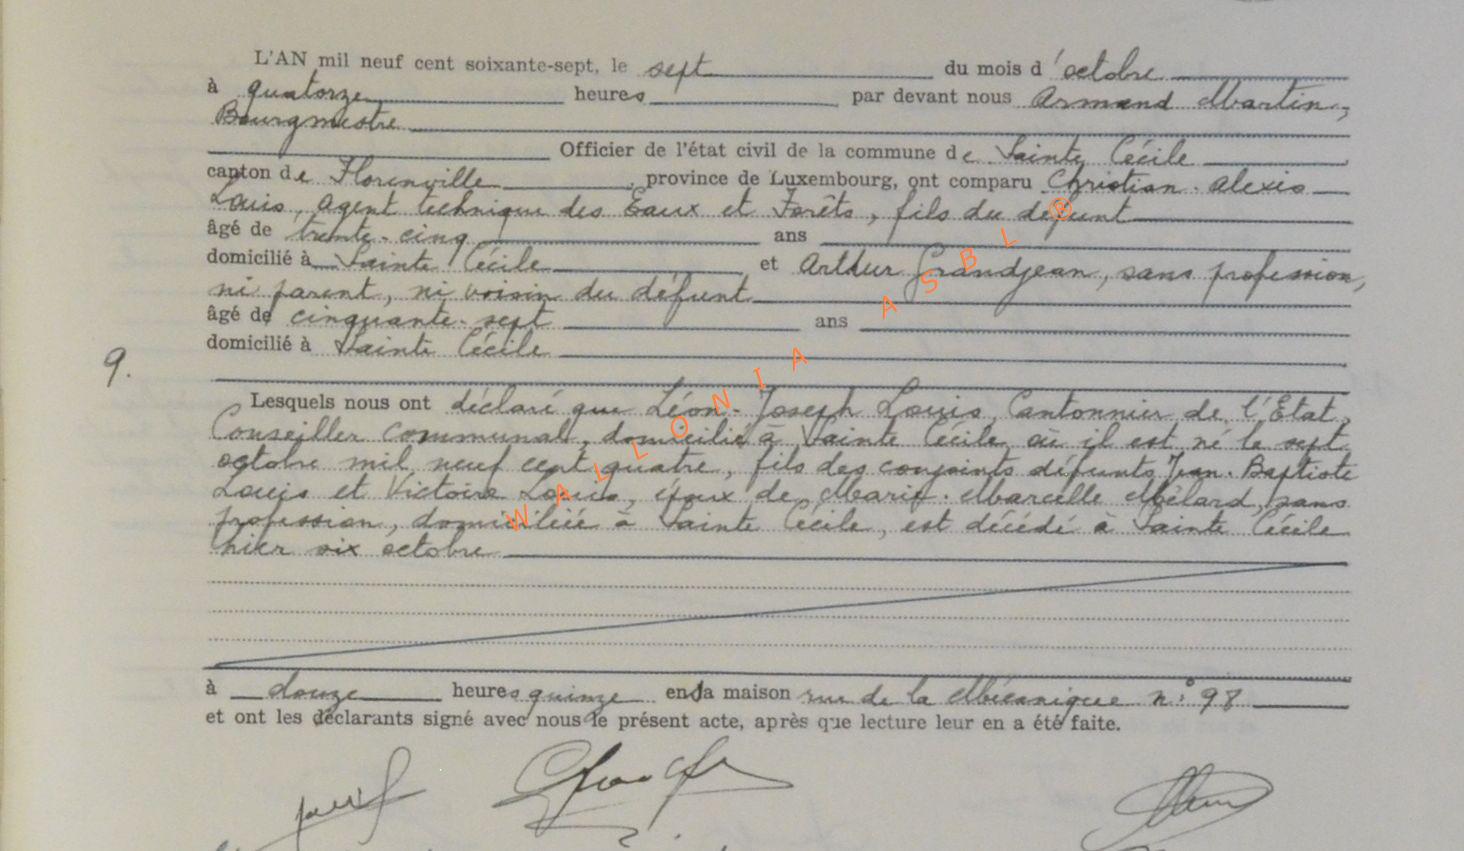 L'AN mil neuf cent soixante-sept, le sept du mois d'octobre
à quatorze heures par devant nous Armand Martin,
Bourgmestre
Officier de l'état civil de la commune de Sainte Cécile
canton de Florenville, province de Luxembourg, ont comparu Christian-Alexis
Louis, agent technique des Eaux et Forêts, fils du defunt
âgé de trente-cinq ans
domicilié à Sainte Cécile et Arthur Grandjean, sans profession,
ni parent, ni voisin du défunt
âgé de cinquante-sept ans
domicilié à Sainte Cécile
9.
Lesquels nous ont déclaré que Léon-Joseph Louis, Cantonnier de l'Etat,
Conseiller communal, domicilié à Sainte Cécile où il est né le sept
octobre mil neuf cent quatre, fils des conjoints défunts Jean-Baptiste
Louis et Victoire Louis, époux de Marie-Marcelle Mélard, sans
profession, domiciliée à Sainte Cécile, est décédé à Sainte Cécile
hier six octobre
à douze heures quinze en la maison rue de la Mécanique n° 98
et ont les déclarants signé avec nous le présent acte, après que lecture leur en a été faite.
WALLONIA ASBL ®